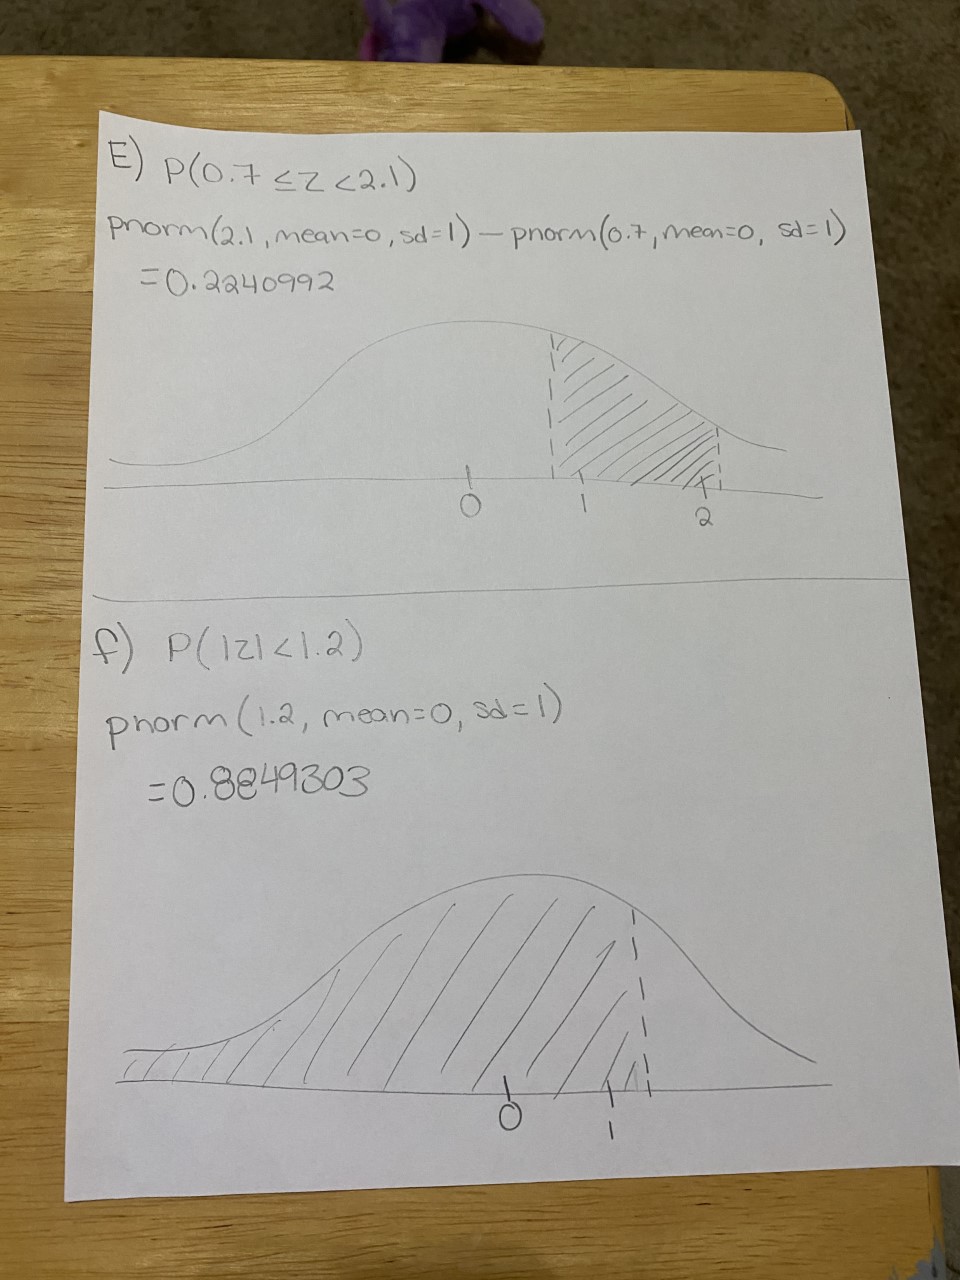 E) P(0.7 ≤ Z < 2.1)
pnorm(2.1, mean=0, sd=1) — pnorm(0.7, mean=0, sd=1)
=0.2240992
0 1 2
f) P(|z| < 1.2)
pnorm(1.2, mean=0, sd=1)
=0.8849303
0 1